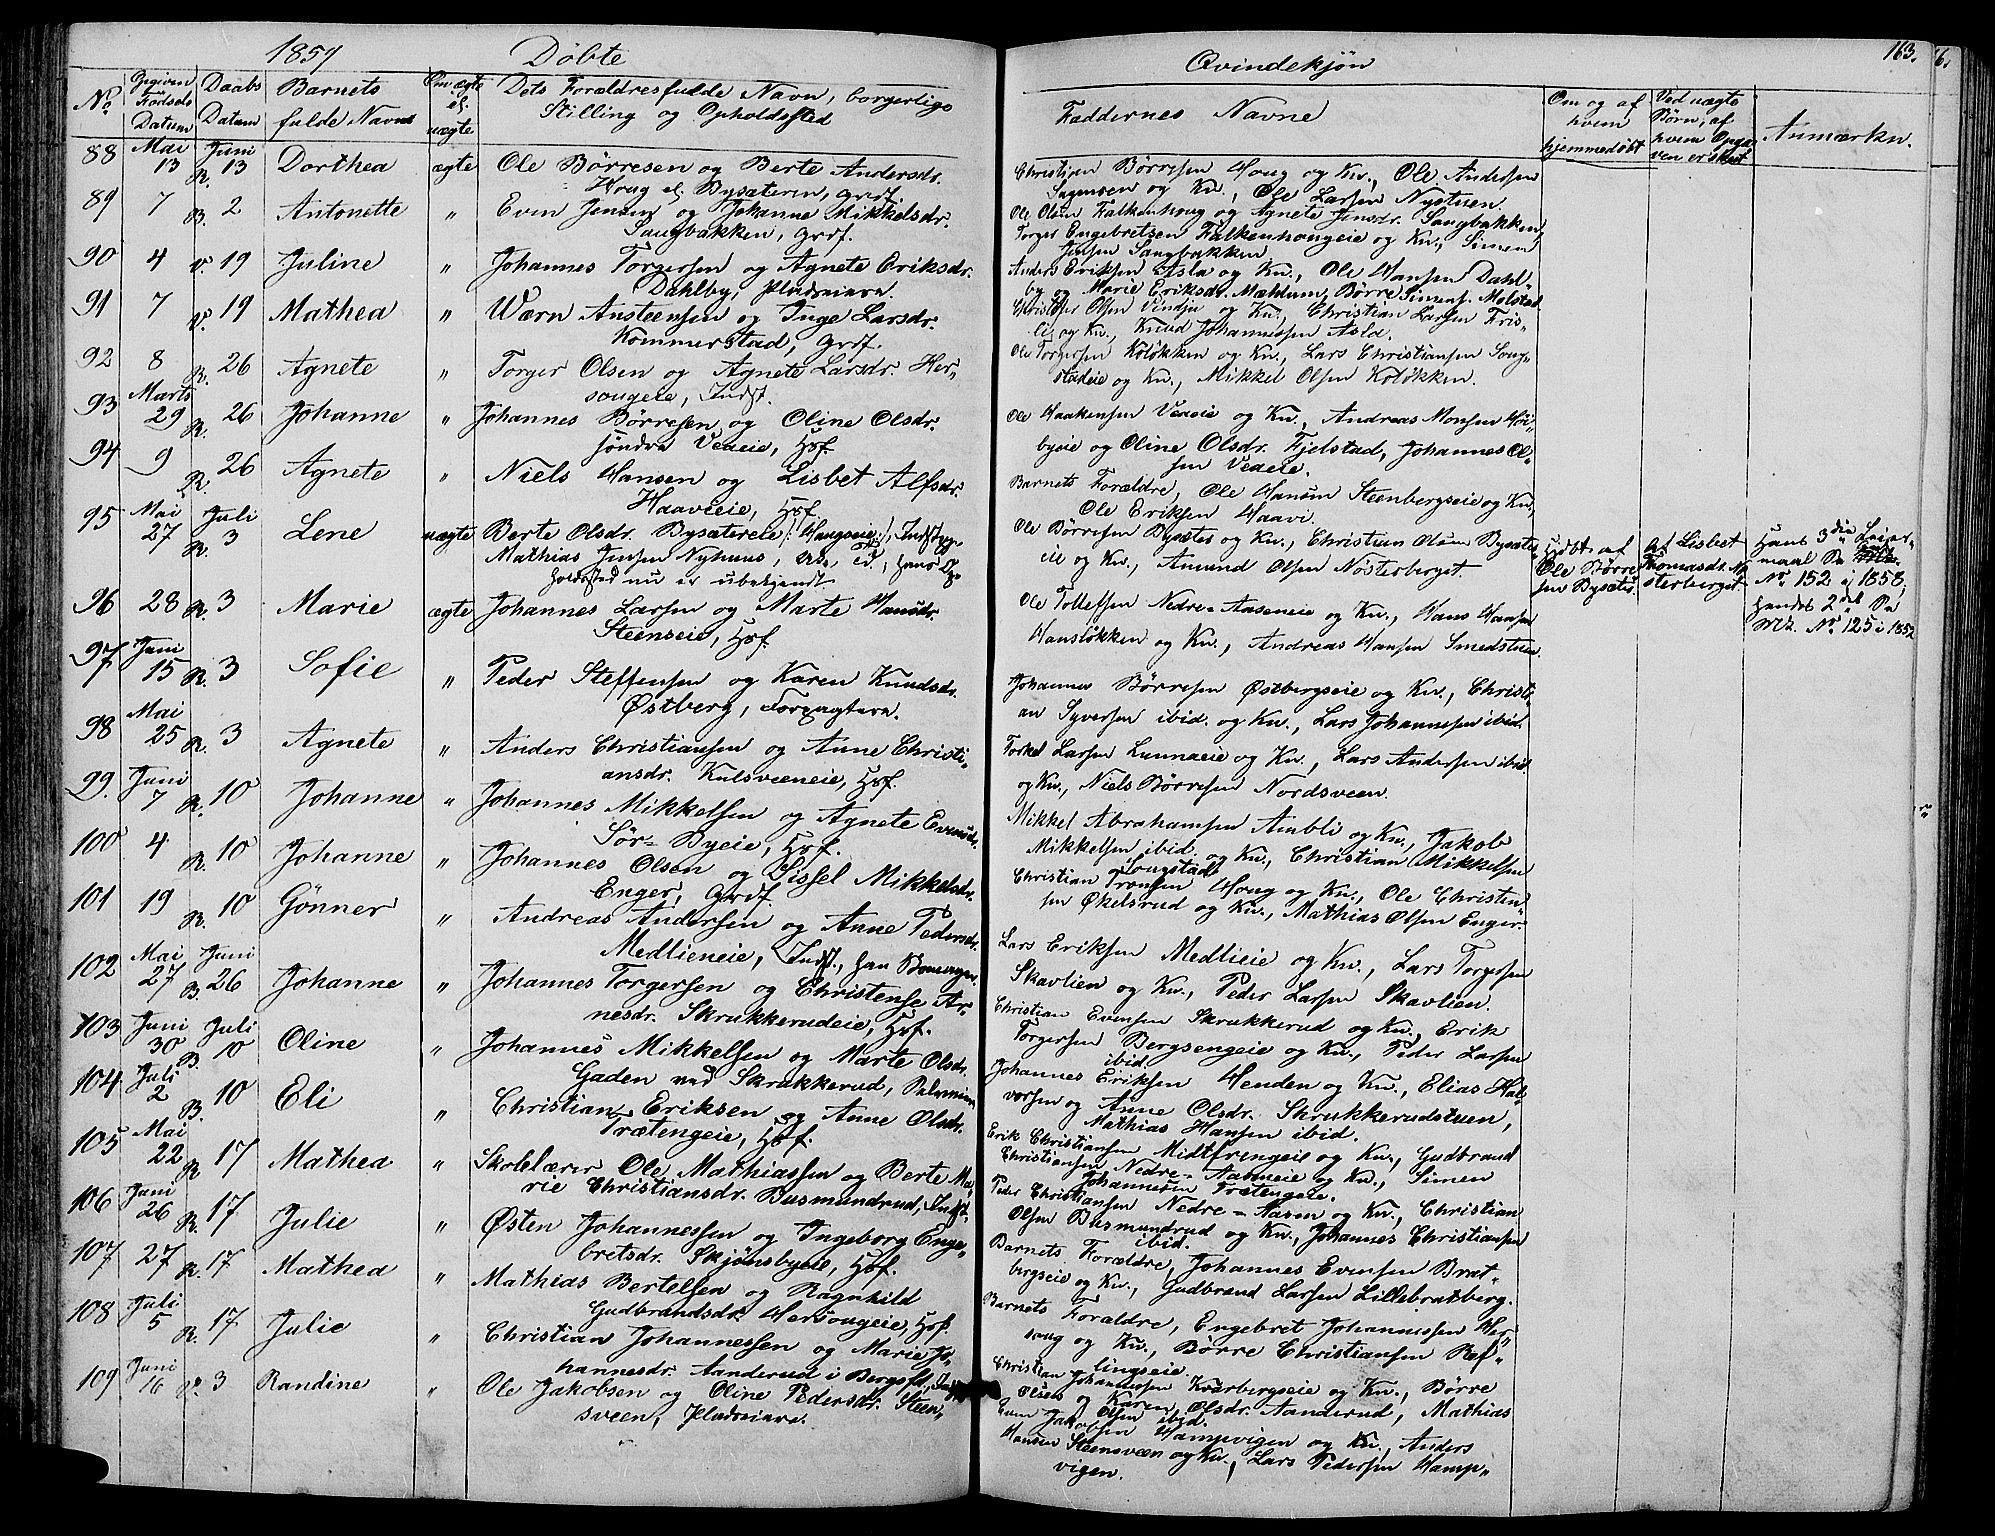 1859 Døbte
Qvindekjøn 163.
No. Opgiven Fødsels Datum Daabs Datum Barnets fulde Navn Om ægte el. uægte Dets Forældres fulde Navn, borgerlige Stilling og Opholdssted
Faddernes Navne Om og af hvem hjemmedøbt Ved uægte Børn, af hvem Opgaven er skeet Anmærkn.
88 Mai 13 R. Juni 13 Dorthea ægte Ole Børresen og Berte Andersdr.
Houg el. Bysæteren, grdf.
Christian Børresen Houg og Kn., Ole Andersen
og Kn., Ole Larsen Nystuen.
89 7 B. 2 Antonette " Even Jensen og Johanne Mikkelsdr.
Saugbakken, grdf.
Ole Olsen Falkenhoug og Agnete Jensdr. Saugbakken,
Torger Engebretsen Falkenhougeie og Kn., Simen
Jensen Saugbakken
90 4 V. 19 Juline " Johannes Torgersen og Agnete Eriksdr.
Dahlby, Pladseiere.
Anders Eriksen Asla og Kn., Ole Hansen Dahl-
by og Marie Eriksdr. Mæhlum, Børre Simens. Molstad.
91 7 V. 19 Mathea " Wærn Ansteensen og Inge Larsdr.
Kommerstad, grdf.
Christopher Olsen Vindju og Kn., Christian Larsen Fris-
li og Kn., Knud Johannessen Asla.
92 8 R. 26 Agnete " Torger Olsen og Agnete Larsdr. Her-
sougeie, Indst.
Ole Torgersen Koløkken og Kn., Lars Christiansen Soug-
stadeie og Kn., Mikkel Olsen Koløkken.
93 Marts 29 R. 26 Johanne " Johannes Børresen og Oline Olsdr.
søndre Veaeie, Hsf.
Ole Haakensen Veaeie og Kn., Andreas Monsen Høi-
byeie og Oline Olsdr. Fjelstad, Johannes Ol-
sen Veaeie.
94 9 R. 26 Agnete " Niels Hansen og Lisbet Alfsdr.
Haavieie, Hsf.
Barnets Forældre, Ole Hansen Steenbergseie og Kn.,
Ole Eriksen Haavi.
95 Mai 27 R. Juli 3 Lene uægte Berte Olsdr. Bysætereie /: Hougseie :/, Indst. og
Mathias Jensen Nyhuus, hans Op-
holdssted nu er ubekjendt.
Ole Børresen Bysæter og Kn., Christian Olsen Bysæter-
eie og Kn., Amund Olsen Nøsterberget.
Hjdøbt af Ole Børresen Bysæter.
af Lisbet Thomasdr. Nøsterberget.
Hans 3die Leiermaal Da No. 152 i 1858, hendes 2det Da Mk. No. 125 i 1852
96 28 R. 3 Marie ægte Johannes Larsen og Marte Hansdr.
Steenseie, Hsf.
Ole Tollefsen Nedre-Aaseneie og Kn., Hans Hansen
Hansløkken og Kn., Andreas Hansen Smedstuen.
97 Juni 15 R. 3 Sofie " Peder Steffensen og Karen Knudsdr.
Østberg, Forpagtere.
Johannes Børresen Østbergseie og Kn., Christi-
an Syversen ibid. og Kn., Lars Johannesen ibid.
98 Mai 25 R. 3 Agnete " Anders Christiansen og Anne Christi-
ansdr. Kulsveeneie, Hsf.
Torkel Larsen Lunnaeie og Kn., Lars Andersen ibid.
og Kn., Niels Børresen Nordsveen.
99. Juni 7 R. 10 Johanne " Johannes Mikkelsen og Agnete Evensdr.
Sør-Byeie, Hsf.
Mikkel Abrahamsen Ambli og Kn., Jakob
Mikkelsen ibid. og Kn., Christian Mikkelsen
Sougstad.
100 4 R. 10 Johanne " Johannes Olsen og Sissel Mikkelsdr.
Enger, grdf.
Christian Transen Houg og Kn., Ole Christen-
sen Økelsrud og Kn., Mathias Olsen Enger.
101 19 R. 10 Gønner " Andreas Andersen og Anne Pedersdr.
Medlieneie, Indst., han
Lars Eriksen Medlieie og Kn., Lars Torgersen
Skavlien og Kn., Peder Larsen Skavlien.
102 Mai 27 B. Juni 26 Johanne " Johannes Torgersen og Christense Ar-
nesdr. Skrukkerudeie, Hsf.
Christian Evensen Skrukkerud og Kn., Erik
Torgersen Bergsengeie og Kn., Peder Larsen
ibid.
103 Juni 30 B. Juli 10 Oline " Johannes Mikkelsen og Marte Olsdr.
Gaden ved Skrukkerud,
Johannes Eriksen Henden og Kn., Elias Hal-
vorsen og Anne Olsdr. Skrukkerudstuen,
Mathias Hansen ibid.
104 Juli 2 B. 10 Eli " Christian Eriksen og Anne Olsdr.
Trætengeie, Hsf.
Erik Christiansen Midtfrengeie og Kn., Gudbrand
Christiansen Nedre-Aaseneie og Kn., Simen
Johannesen Trætengeie.
105 Mai 22 R. 17 Mathea " Skolelærer Ole Mathiassen og Berte Ma-
rie Christiansdr. Busmundrud, Indst.
Peder Christiansen Nedre-Aasen og Kn., Christian
Olsen Busmundrud og Kn., Johannes Christiansen
ibid.
106 Juni 26 R. 17 Julie " Østen Johannessen og Ingeborg Enge-
bretsdr. Skjønsbyeie, Hsf.
Barnets Forældre, Johannes Evensen Brat-
bergseie og Kn., Gudbrand Larsen Lillebratberg.
107 27 R. 17 Mathea " Mathias Bertelsen og Ragnhild
Gudbrandsdr. Hersougeie, Hsf.
Barnets Forældre, Engebret Johannessen Her-
soug og Kn., Børre Christiansen Ref-
lingseie.
108 Juli 5 R. 17 Julie " Christian Johannessen og Marie Jo-
hannesdr. Aanderud i Bergsfjd.,
Christian Johannessen Kværbergseie og Kn., Børre
Olsen og Karen Olsdr. Aanderud, Mathias
Olsen ibid.
109 Juni 16 V. 3 Randine " Ole Jakobsen og Oline Pedersdr. Steen-
sveen, Pladseiere.
Even Jakobsen Hampvigen og Kn., Anders
Hansen Steensveen og Kn., Lars Pedersen Hamp-
vigen.